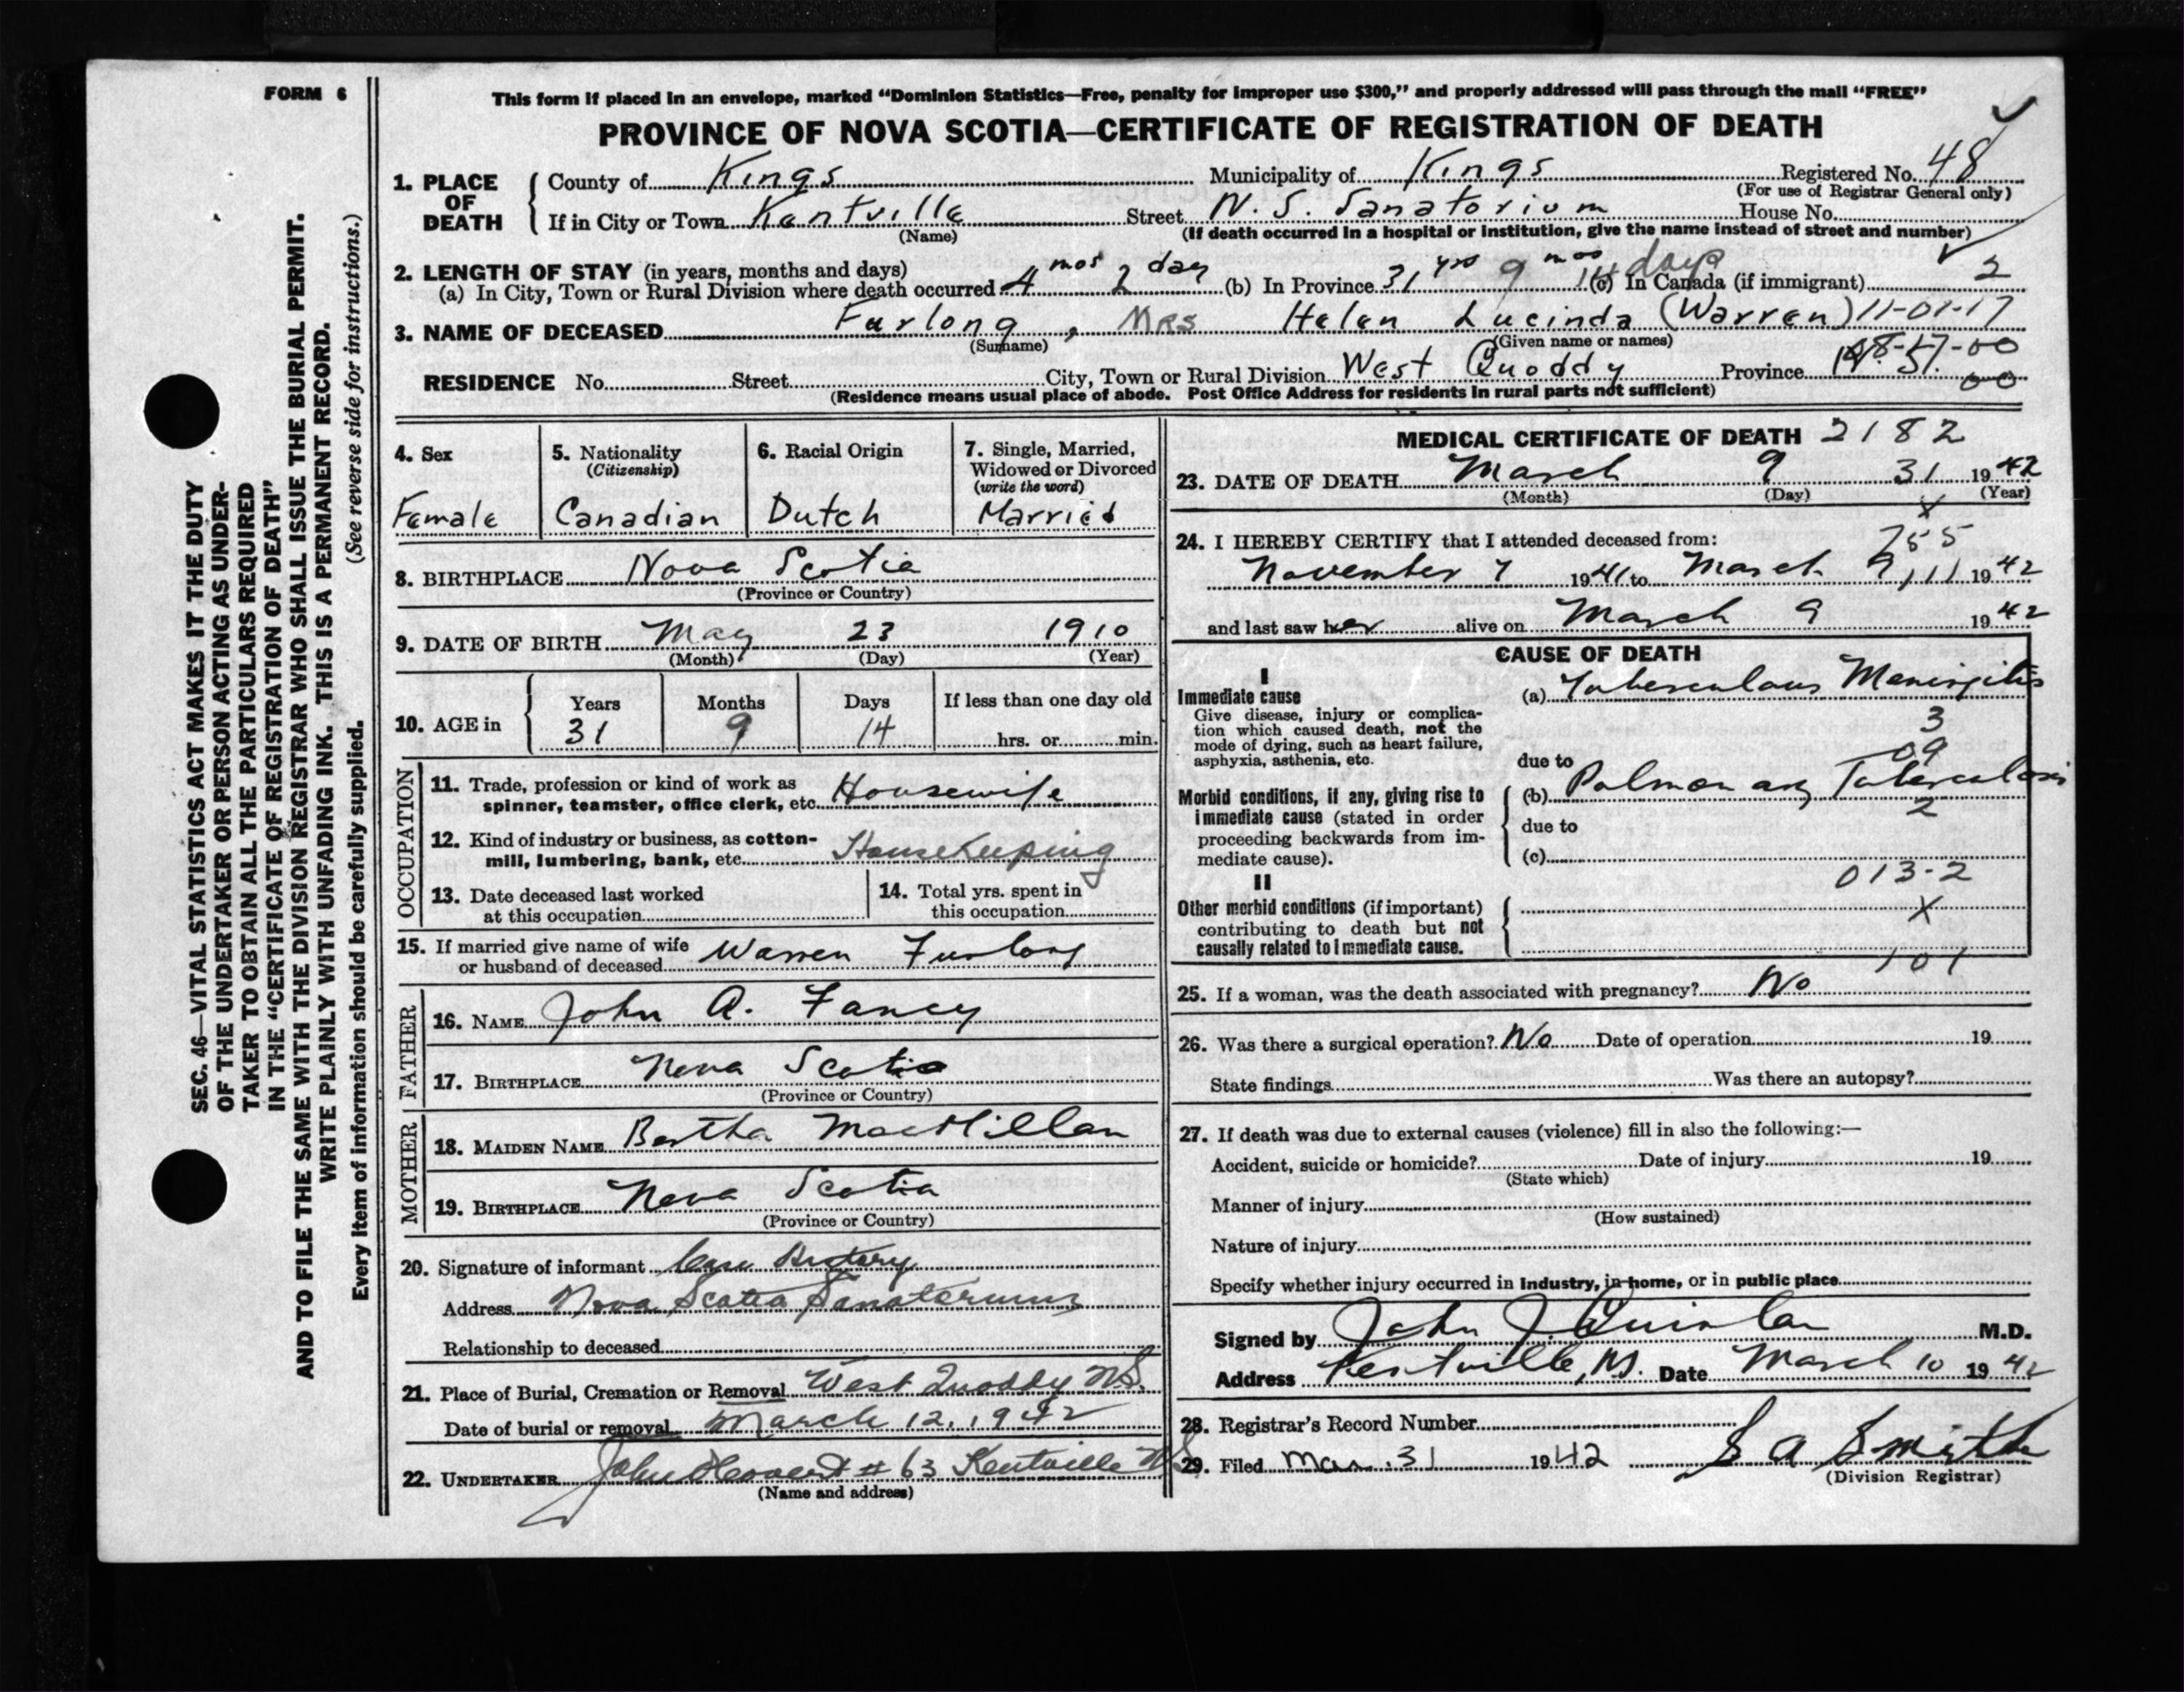 FORM 6
This form if placed in an envelope, marked “Dominion Statistics—Free, penalty for improper use $300,” and properly addressed will pass through the mail “FREE”
PROVINCE OF NOVA SCOTIA—CERTIFICATE OF REGISTRATION OF DEATH
1. PLACE OF DEATH
County of Kings Municipality of Kings Registered No. 48
(For use of Registrar General only)
If in City or Town Kentville Street N. S. Sanatorium House No.
(Name) (If death occurred in a hospital or institution, give the name instead of street and number)
2. LENGTH OF STAY (in years, months and days)
(a) In City, Town or Rural Division where death occurred 4 mos 2 day (b) In Province 31 yrs 9 mos 14 days (c) In Canada (if immigrant) 2
3. NAME OF DECEASED Furlong, MRS Helen Lucinda (Warren) 11-01-17
(Surname) (Given name or names)
RESIDENCE No. Street City, Town or Rural Division West Quoddy Province
(Residence means usual place of abode. Post Office Address for residents in rural parts not sufficient)
4. Sex
Female
5. Nationality
(Citizenship)
Canadian
6. Racial Origin
Dutch
7. Single, Married,
Widowed or Divorced
(write the word)
Married
8. BIRTHPLACE Nova Scotia
(Province or Country)
9. DATE OF BIRTH May 23 1910
(Month) (Day) (Year)
10. AGE in
Years Months Days If less than one day old
31 9 14 hrs. or min.
OCCUPATION
11. Trade, profession or kind of work as
spinner, teamster, office clerk, etc. Housewife
12. Kind of industry or business, as cotton-
mill, lumbering, bank, etc. Housekeeping
13. Date deceased last worked
at this occupation
14. Total yrs. spent in
this occupation
15. If married give name of wife
or husband of deceased Warren Furlong
FATHER
16. NAME John A. Fancy
17. BIRTHPLACE Nova Scotia
(Province or Country)
MOTHER
18. MAIDEN NAME Bertha MacMillan
19. BIRTHPLACE Nova Scotia
(Province or Country)
20. Signature of informant Case History
Address Nova Scotia Sanatorium
Relationship to deceased
21. Place of Burial, Cremation or Removal West Quoddy N.S.
Date of burial or removal March 12, 1942
22. UNDERTAKER John # 63 Kentville NS
(Name and address)
MEDICAL CERTIFICATE OF DEATH 2182
23. DATE OF DEATH March 9 31 1942
(Month) (Day) (Year)
x
24. I HEREBY CERTIFY that I attended deceased from: 755
November 7 1941 to March 9, 11 1942
and last saw her alive on March 9 1942
CAUSE OF DEATH
I
Immediate cause
Give disease, injury or complica-
tion which caused death, not the
mode of dying, such as heart failure,
asphyxia, asthenia, etc.
(a) Tuberculous Meningitis
3
09
due to
Morbid conditions, if any, giving rise to
immediate cause (stated in order
proceeding backwards from im-
mediate cause).
(b) Pulmonary Tuberculosis
2
due to
(c)
013-2
II
Other morbid conditions (if important)
contributing to death but not
causally related to immediate cause.
X
101
25. If a woman, was the death associated with pregnancy? No
26. Was there a surgical operation? No Date of operation 19
State findings Was there an autopsy?
27. If death was due to external causes (violence) fill in also the following:—
Accident, suicide or homicide? Date of injury 19
(State which)
Manner of injury
(How sustained)
Nature of injury
Specify whether injury occurred in industry, in home, or in public place
Signed by John J. Quinlan M.D.
Address Kentville, NS. Date March 10 1942
28. Registrar's Record Number
29. Filed Mar. 31 1942 S A Smith
(Division Registrar)
SEC. 46—VITAL STATISTICS ACT MAKES IT THE DUTY
OF THE UNDERTAKER OR PERSON ACTING AS UNDER-
TAKER TO OBTAIN ALL THE PARTICULARS REQUIRED
IN THE “CERTIFICATE OF REGISTRATION OF DEATH”
AND TO FILE THE SAME WITH THE DIVISION REGISTRAR WHO SHALL ISSUE THE BURIAL PERMIT.
WRITE PLAINLY WITH UNFADING INK. THIS IS A PERMANENT RECORD.
Every item of information should be carefully supplied. (See reverse side for instructions.)